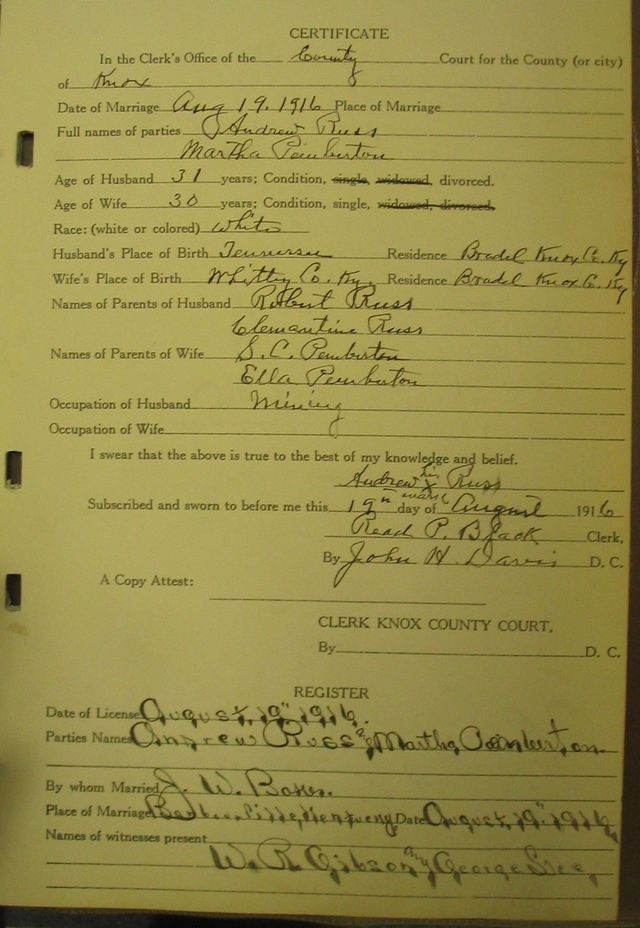 CERTIFICATE
In the Clerk's Office of the County Court for the County (or city)
of Knox
Date of Marriage Aug 19, 1916 Place of Marriage
Full names of parties Andrew Russ
Martha Pemberton
Age of Husband 31 years; Condition, single, widowed, divorced.
Age of Wife 30 years; Condition, single, widowed, divorced.
Race: (white or colored) White
Husband's Place of Birth Tennessee Residence Knox Co. Ky
Wife's Place of Birth Whitley Co. Ky. Residence Knox Co. Ky
Names of Parents of Husband Robert Russ
Clemantine Russ
Names of Parents of Wife S. C. Pemberton
Ella Pemberton
Occupation of Husband Mining
Occupation of Wife
I swear that the above is true to the best of my knowledge and belief.
Andrew his x mark Russ
Subscribed and sworn to before me this 19th day of August 1916
Read P. Black Clerk,
By John H. Davis D. C.
A Copy Attest:
CLERK KNOX COUNTY COURT.
By D. C.
REGISTER
Date of License August, 19" 1916.
Parties Names Andrew Russ & Martha Pemberton.
By whom Married J. W.
Place of Marriage Kentucky Date August, 19" 1916,
Names of witnesses present
W. R. Gibson George